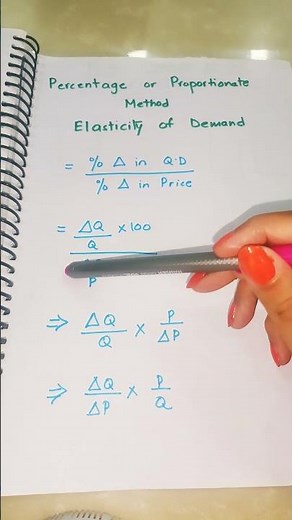 Percentage or Proportionate
Method
Elasticity of Demand
= % Δ in Q.D
% Δ in Price
= ΔQ × 100
Q
P
⇒ ΔQ × P
Q ΔP
⇒ ΔQ × P
ΔP Q